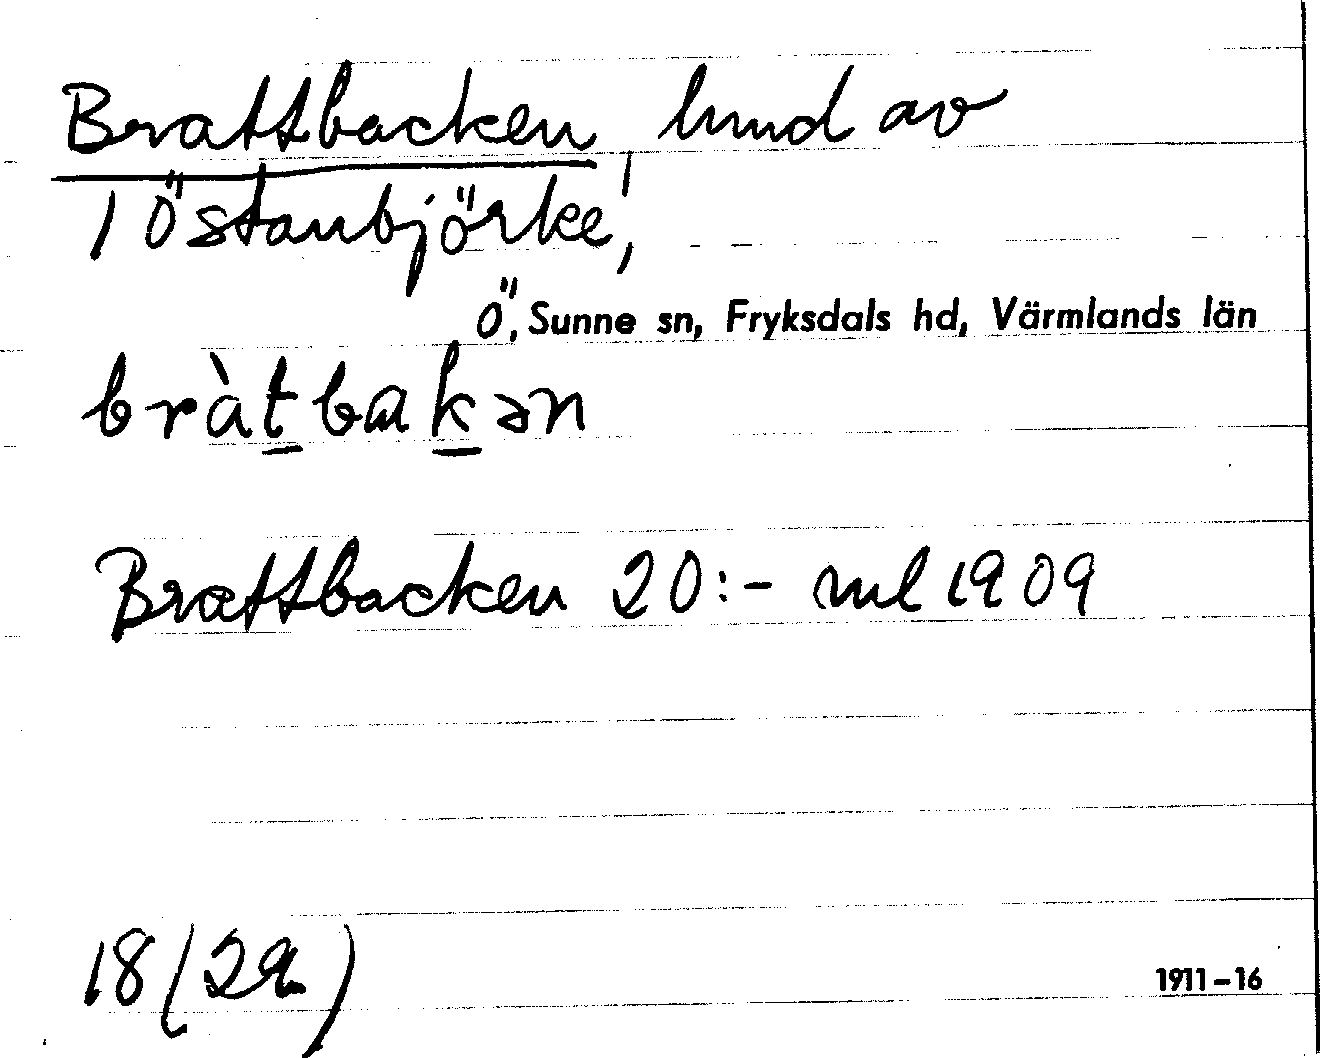 Brattbacken, hmd av
1 Östanbjörke,
Ö, Sunne sn, Fryksdals hd, Värmlands län
bràt̲bak̲ən
Brattbacken 20:- ml 1909
18 (29)
1911–16